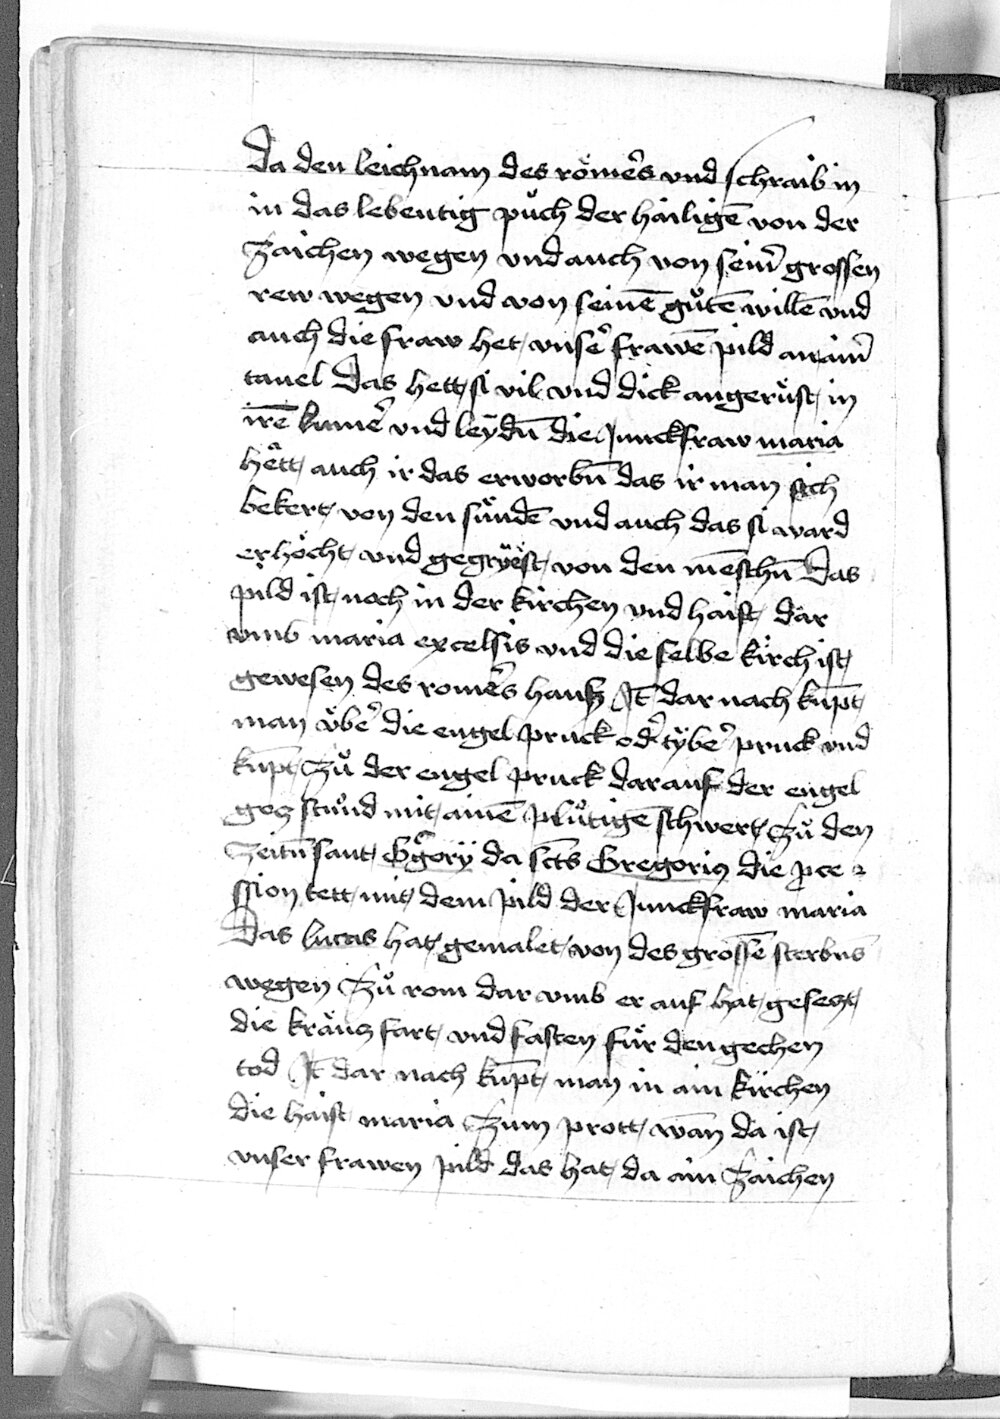 Da den leichnam des römers̄ vnd schraib in
in das lebentig půch der hailigē von der
zaichen wegen vnd auch von seim̄ grossen
rew wegen vnd von seinē gůtē willē vnd
auch die fraw het vnser̄ frawē pild an aim̄
tauel Das hett si vil vnd dick angerůft in
irē kumer̄ vnd leÿdn̄ die Junckfraw maria
hett auch ir das erworbn̄ das ir man sich
bekert von den sündē vnd auch das si ward
erhöcht vnd gegrüest von den mēschn̄ Das
pild ist noch in der kirchen vnd haist dar
vmb maria excelsis vnd die selbe kirch ist
gewesen des romers̄ hauß Jt̄ dar nach kūpt
man vber̄ die engel pruck oder̄ tÿber̄ pruck vnd
kūpt zů der engel pruck darauf der engel
gocz stůnd mit ainē plůtigē schwert zů den
zeitn̄ sant Ggorÿ da scts̄ Gregorius die pce
ssion tett mit dem pild der Junckfraw maria
Das lucas hat gemalet von des grossē sterbns̄
wegen zů rom dar vmb er auf hat gesetzt
die kräucz fart vnd fasten für den gechen
tod Jt̄ dar nach kūpt man in ain kirchen
die haist maria zum prott wān da ist
vnser frawen pild das hat da ain zaichen